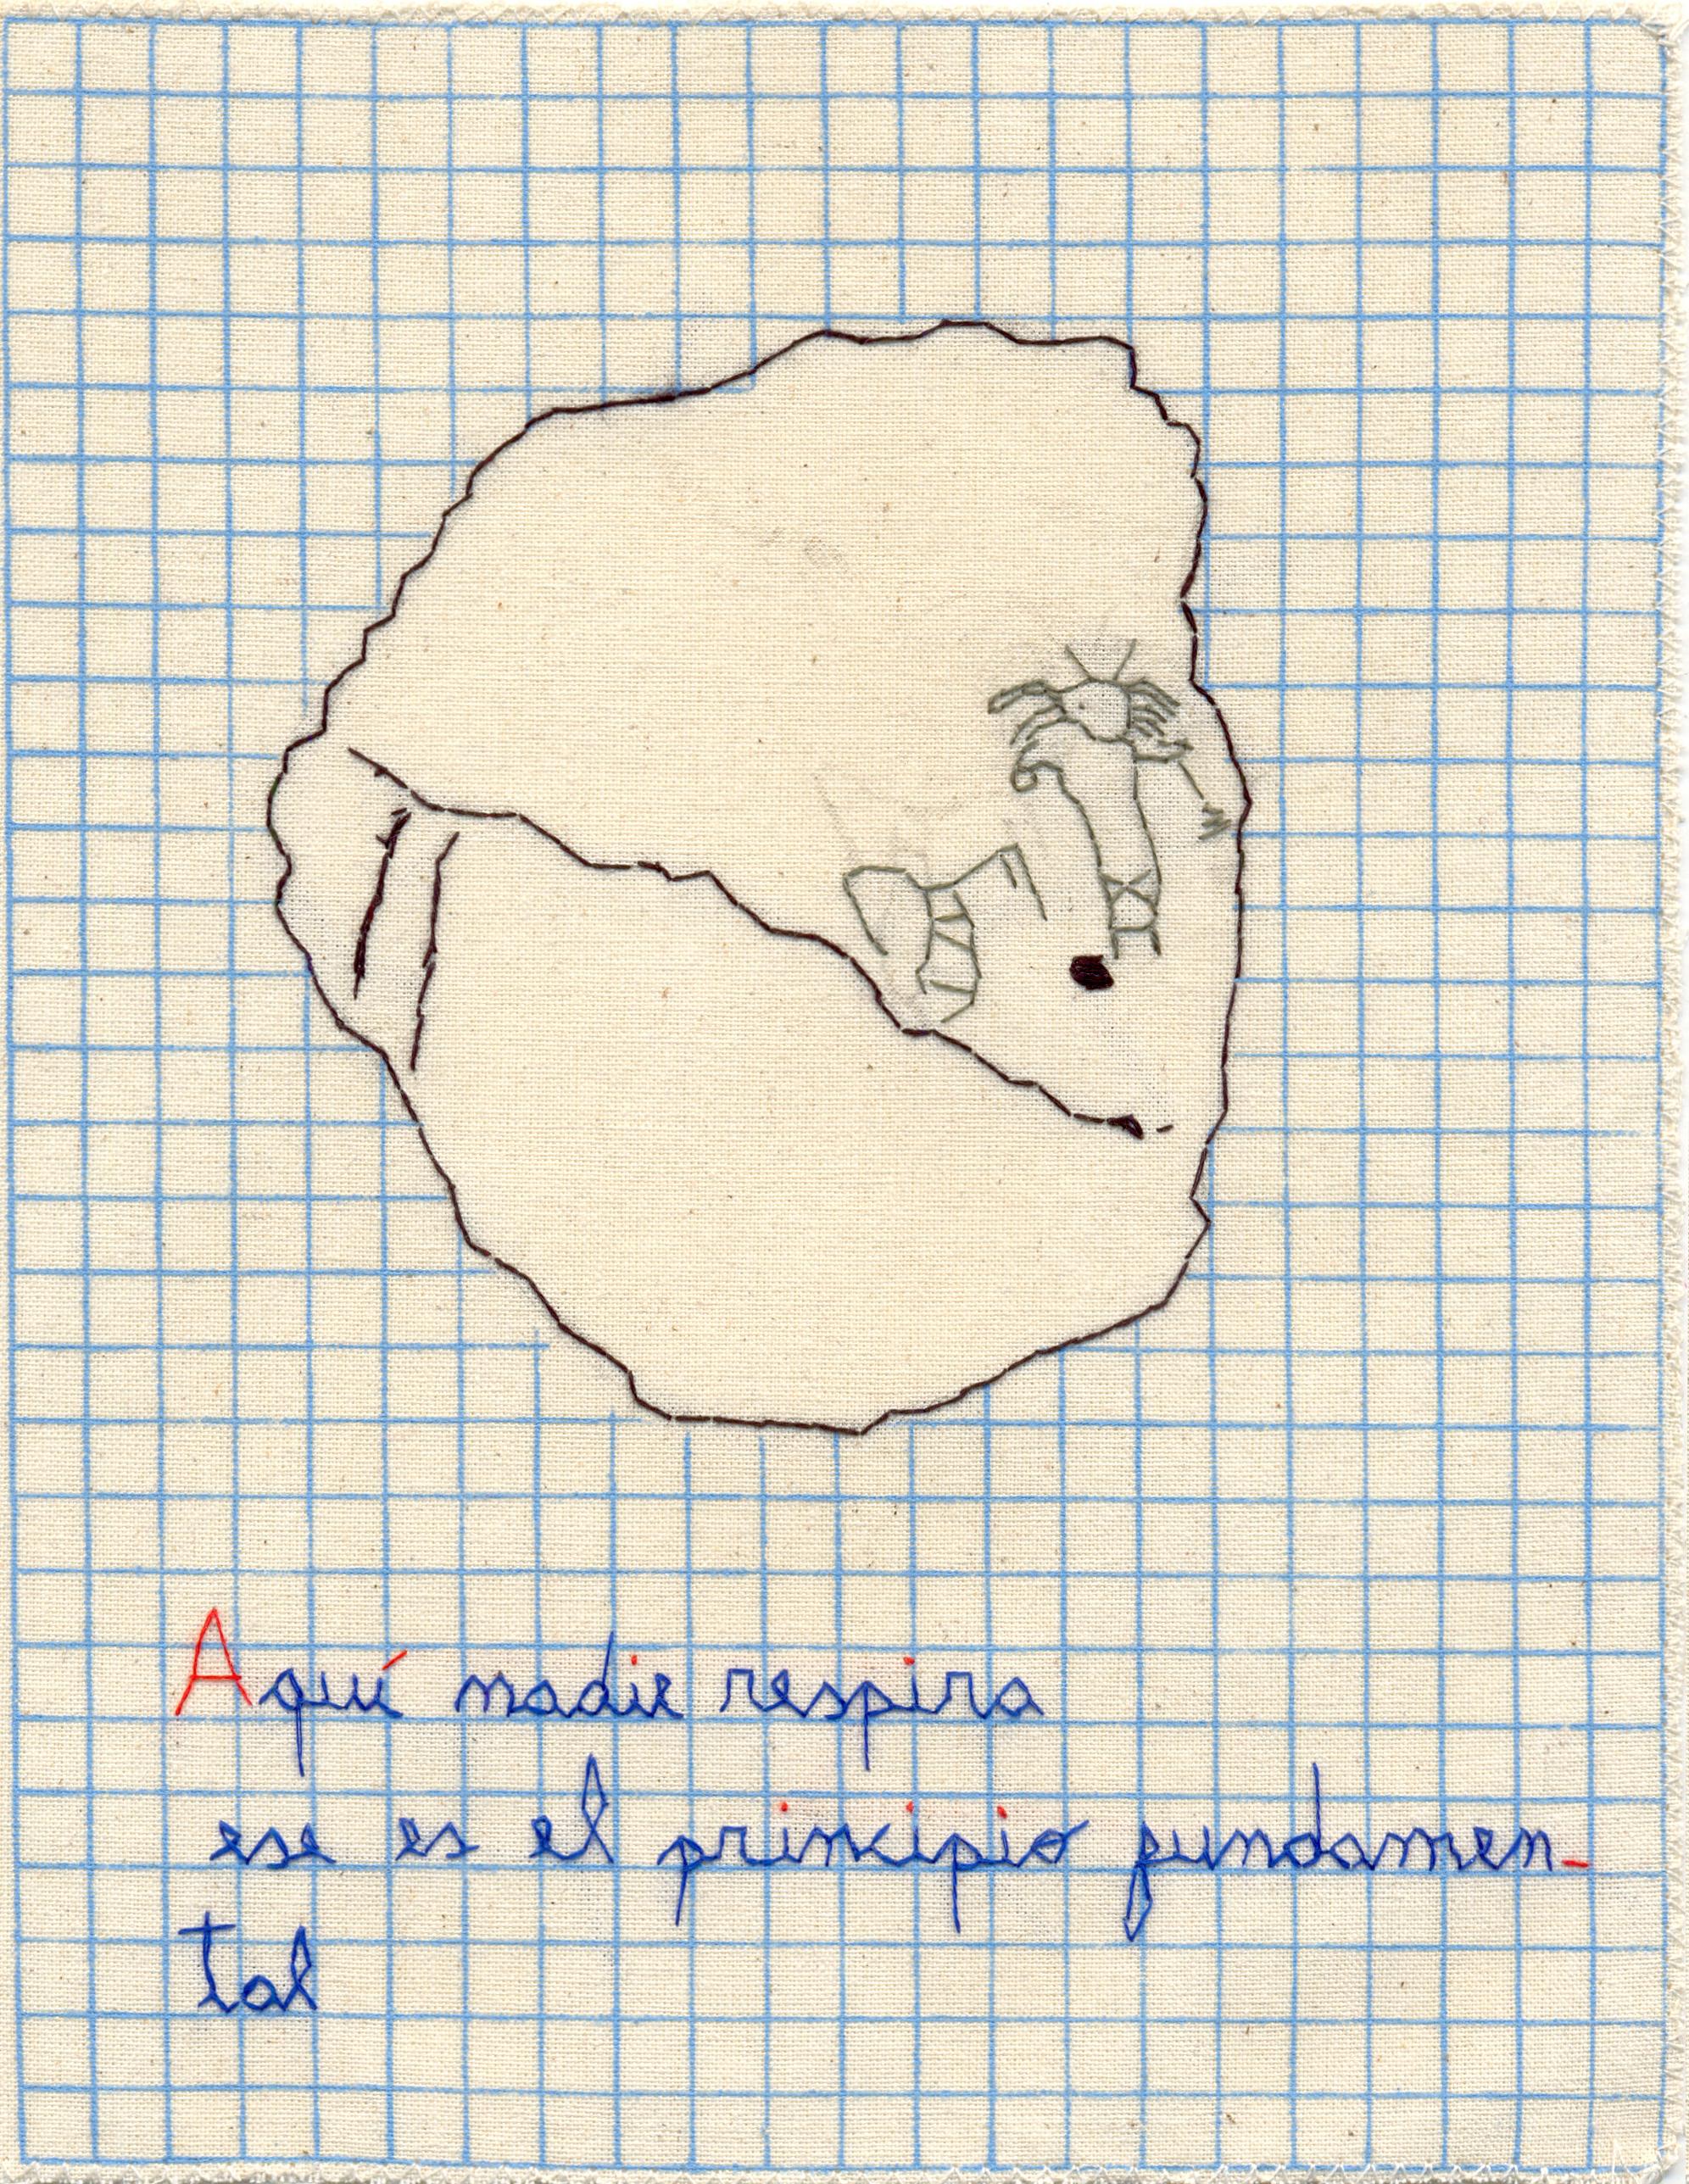 Aquí nadie respira
ese es el principio fundamen-
tal